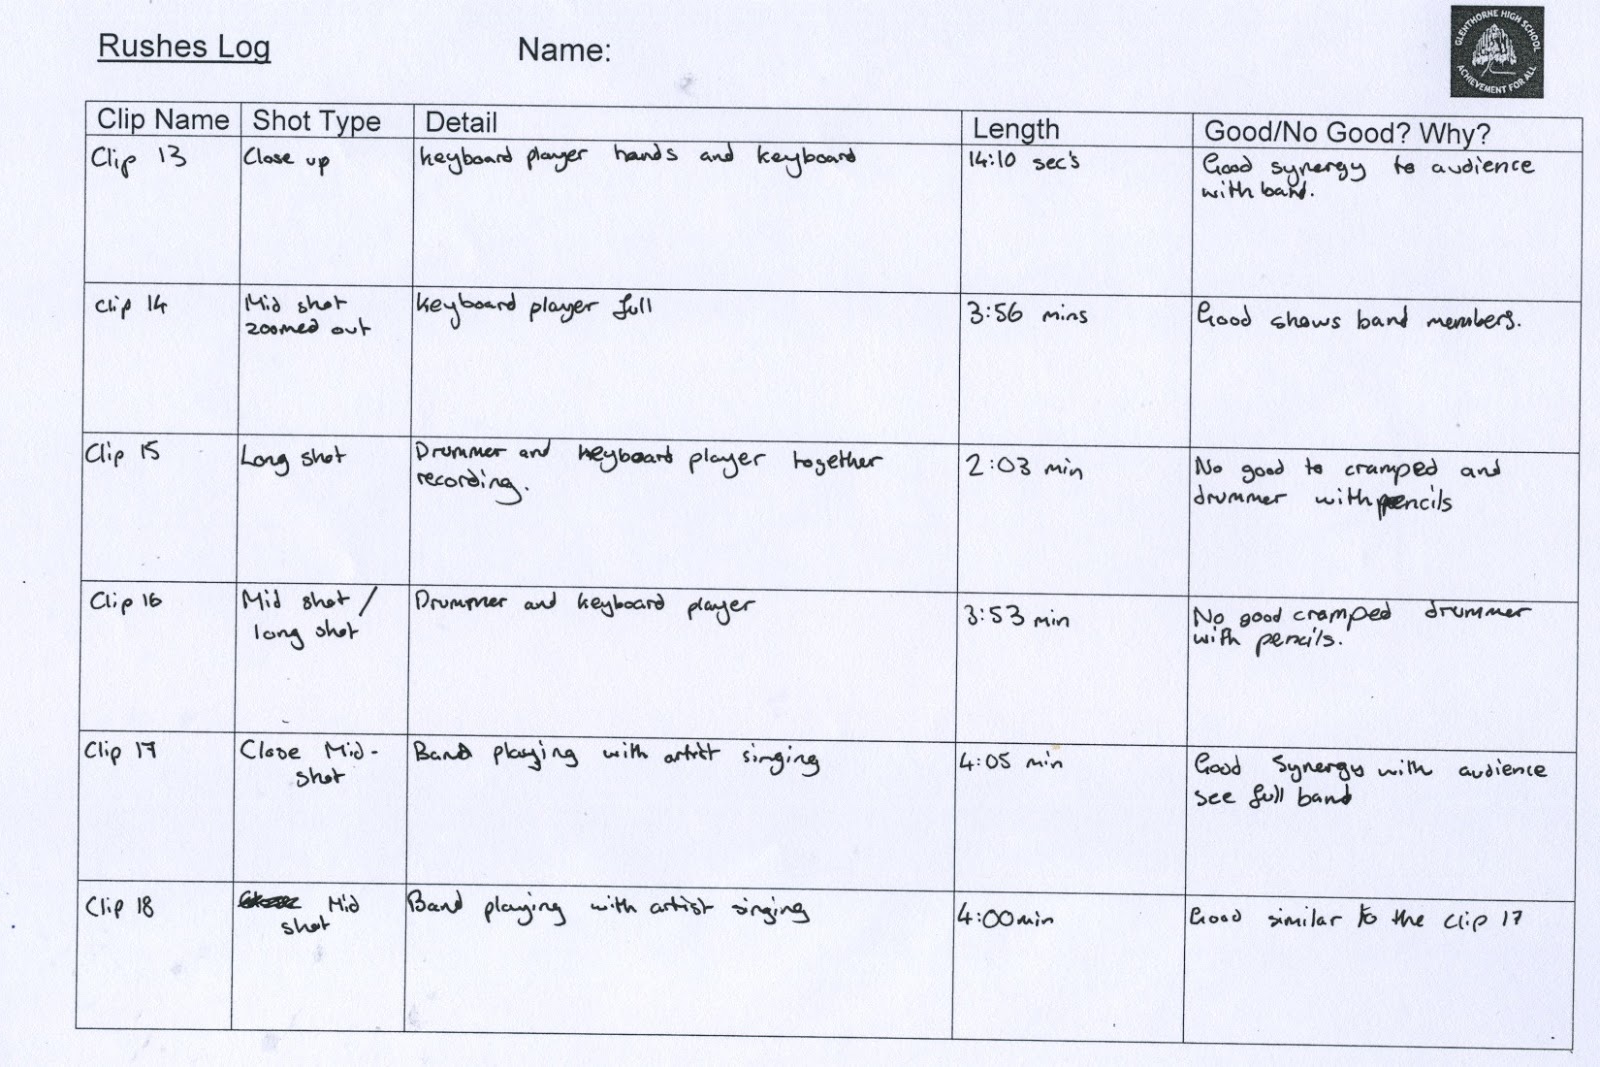 Rushes Log
Name:
GLENTHORNE HIGH SCHOOL
ACHIEVEMENT FOR ALL
Clip Name Shot Type Detail Length Good/No Good? Why?
Clip 13 Close up Keyboard player hands and keyboard 14:10 sec's Good synergy to audience
with band.
Clip 14 Mid shot Keyboard player full 3:56 mins Good shows band members.
zoomed out
Clip 15 Long shot Drummer and keyboard player together 2:03 min No good to cramped and
recording. drummer with pencils
Clip 16 Mid shot / Drummer and keyboard player 3:53 min No good cramped drummer
long shot with pencils.
Clip 17 Close Mid- Band playing with artist singing 4:05 min Good Synergy with audience
shot see full band
Clip 18 Mid Band playing with artist singing 4:00min Good similar to the clip 17
shot